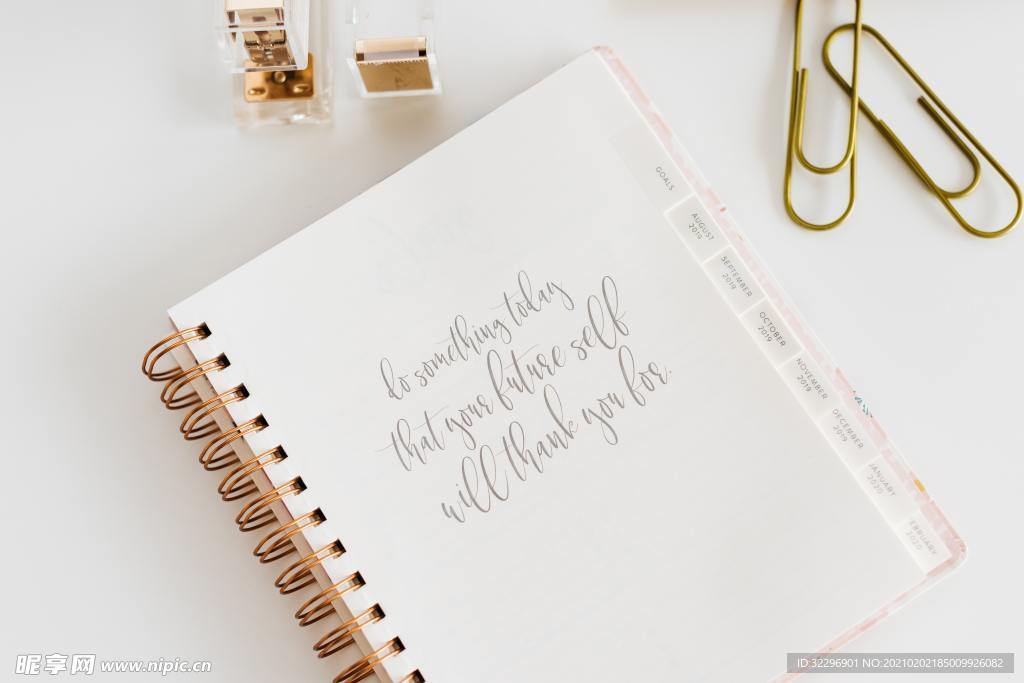 do something today
that your future self
will thank you for.
GOALS
AUGUST
2019
SEPTEMBER
2019
OCTOBER
2019
NOVEMBER
2019
DECEMBER
2019
JANUARY
2020
FEBRUARY
2020
昵享网 www.nipic.cn
ID:32296901 NO:20210202185009926082